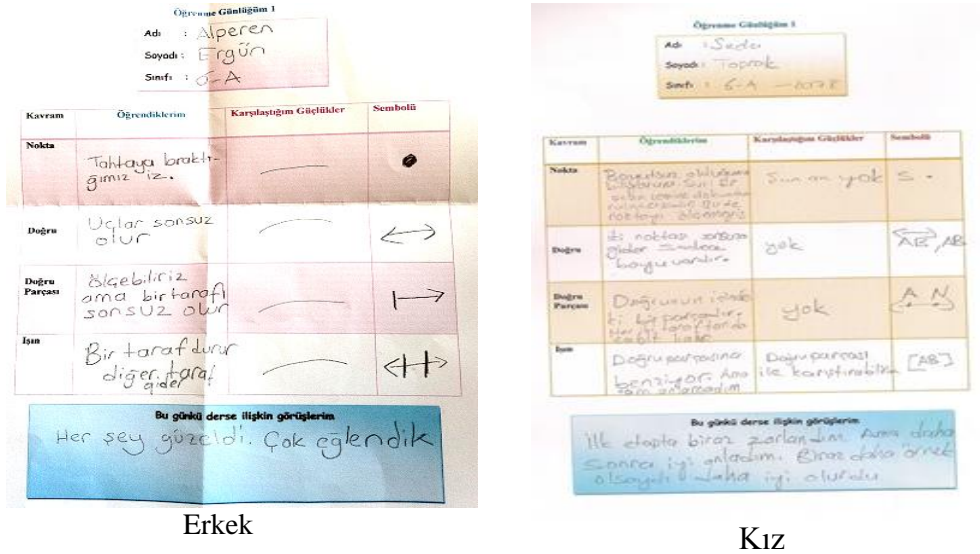 Öğrenme Günlüğüm 1
Adı : Alperen
Soyadı : Ergün
Sınıfı : 6-A
Kavram Öğrendiklerim Karşılaştığım Güçlükler Sembolü
Nokta
Tahtaya bıraktı-
ğımız iz.
Doğru
Uçlar sonsuz
olur
Doğru
Parçası
ölçebiliriz
ama bir tarafı
sonsuz olur
Işın
Bir taraf durur
diğer taraf
gider
Bu günkü derse ilişkin görüşlerim
Her şey güzeldi. Çok eğlendik
Erkek
Öğrenme Günlüğüm 1
Adı : Seda
Soyadı : Toprak
Sınıfı : 6-A
Kavram Öğrendiklerim Karşılaştığım Güçlükler Sembolü
Nokta
Boyutsuz olduğunu
noktayı
Şun an yok
S .
Doğru
iki noktası sonsuza
gider Sadece
boyu vardır.
yok
AB, AB
Doğru
Parçası
Doğrunun içinde
ki bir parçadır.
Her iki tarafta
yok
A N
Işın
Doğru parçasına
benziyor. Ama
tam anlamadım
Doğru parçası
ile karıştırabilirim
[AB]
Bu günkü derse ilişkin görüşlerim
İlk etapta biraz zorlandım Ama daha
Sonra iyi anladım. Biraz daha örnek
olsaydı daha iyi olurdu
Kız